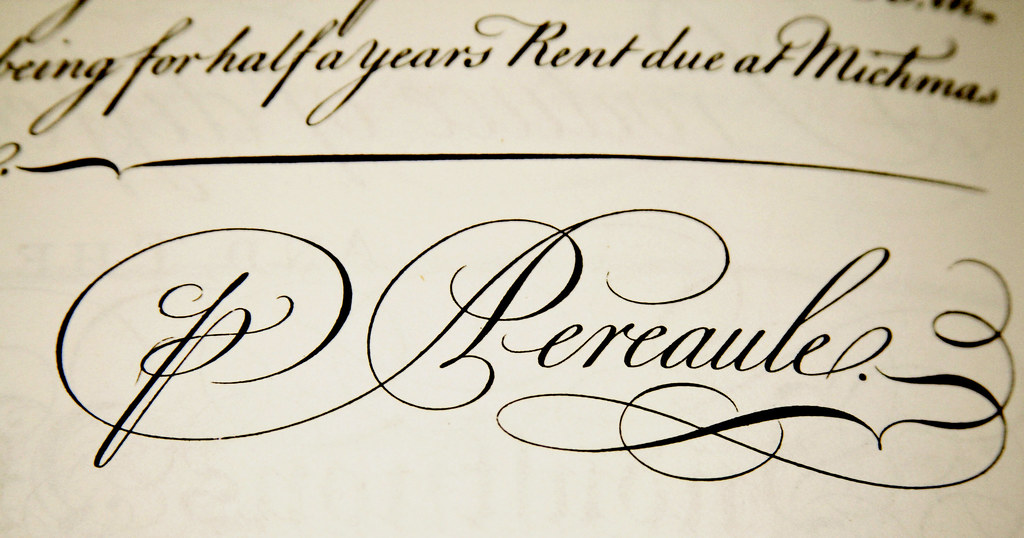 being for half a years Rent due at Michmas
p Pereaule.